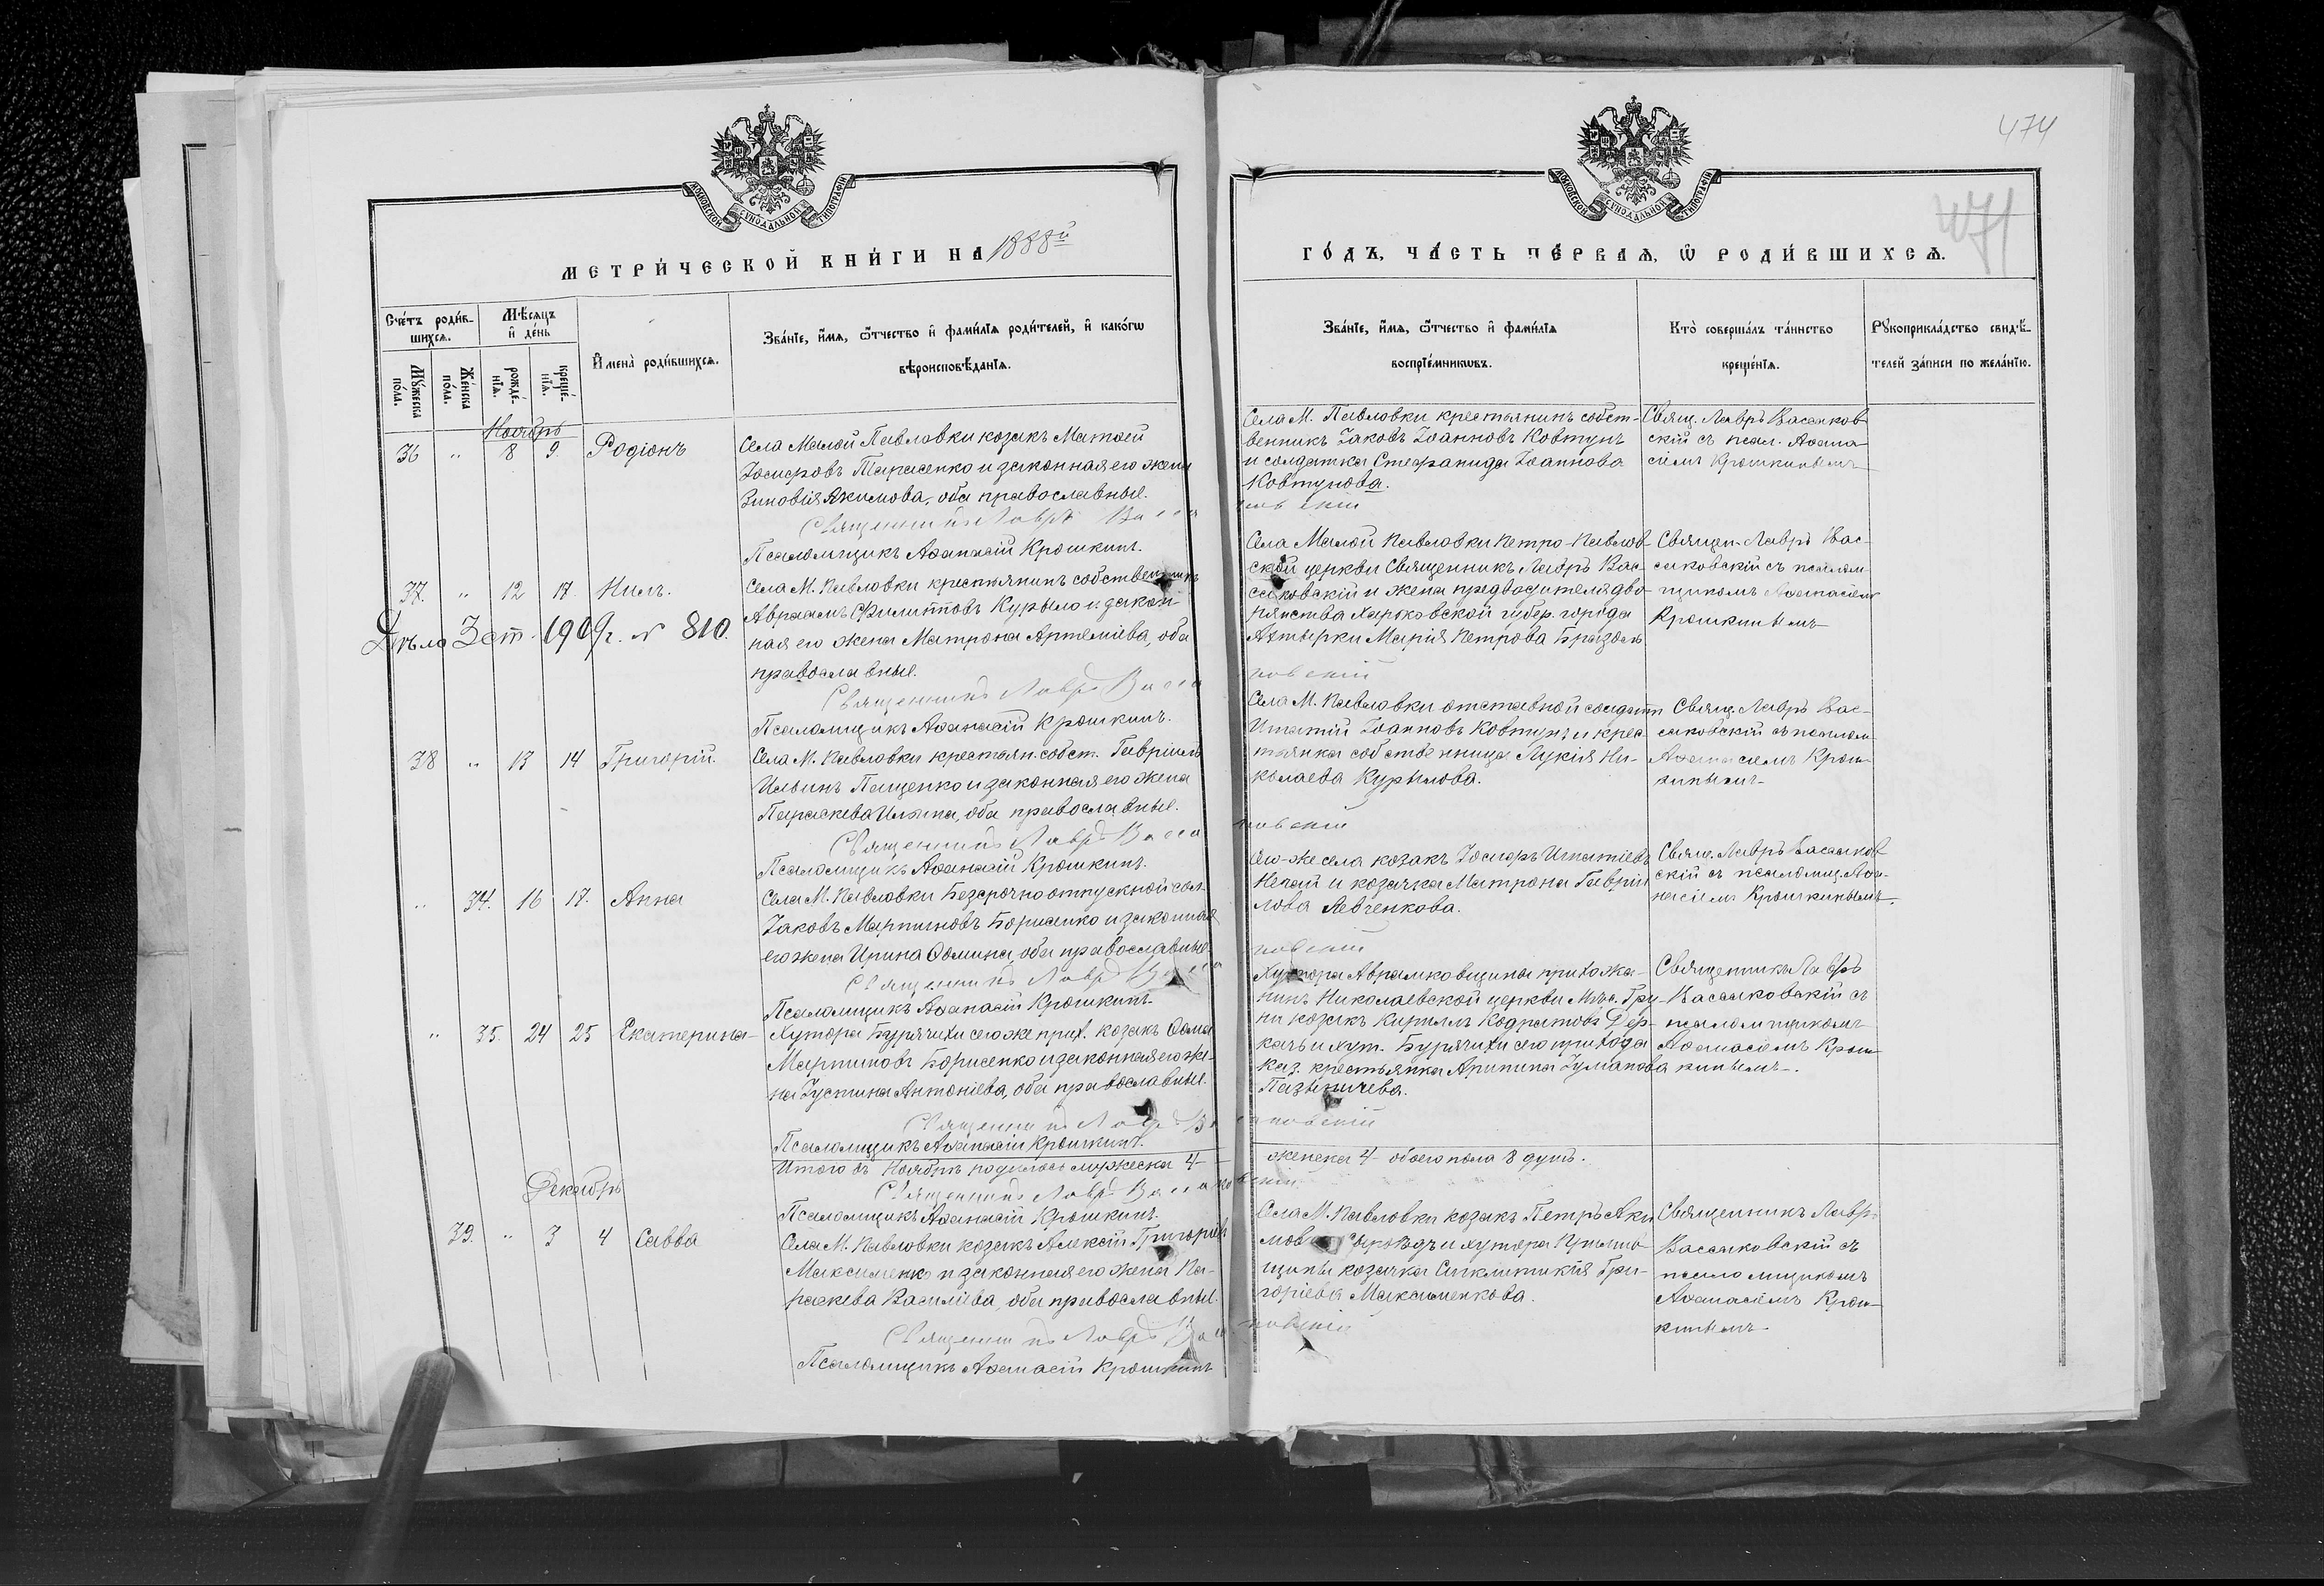 474
471
МОСКОВСКОЙ СѴНОДАЛЬНОЙ ТИПОГРАФІИ
МОСКОВСКОЙ СѴНОДАЛЬНОЙ ТИПОГРАФІИ
МЕТРИ́ЧЕСКОЙ КНИ́ГИ НА 1888й
ГО́ДЪ, ЧА́СТЬ ПЕ́РВАѦ, Ѡ РОДИ́ВШИХСѦ.
Сче́тъ роди́в-
шихсѧ.
Мѣ́сѧцъ
и҆ де́нь
Мꙋ́жеска
по́ла.
Же́нска
по́ла.
рожде́-
нїѧ.
креще́-
нїѧ.
И҆мена̀ роди́вшихсѧ.
Зва́нїе, и҆́мѧ, ѻ҆́тчество и҆ фами́лїѧ роди́телей, и҆ како́гѡ
вѣроисповѣ́данїѧ.
Зва́нїе, и҆́мѧ, ѻ҆́тчество и҆ фами́лїѧ
воспрїе́мникѡвъ.
Кто̀ соверша́лъ та́инство
креще́нїѧ.
Рꙋкоприкла́дство свидѣ́-
телей за́писи по жела́нїю.
Ноябрь
36 " 8 9. Родіонъ
Села Малой Павловки козакъ Матѳей
Іосифовъ Тарасенко и законная его жена
Зиновія Акимова, оба православные.
Священникъ Лавръ Васса
Псаломщикъ Аѳанасій Крошкинъ.
Села М. Павловки крестьянинъ собст-
венникъ Іаковъ Іоанновъ Ковтунъ
и солдатка Стефанида Іоаннова
Ковтунова.
ковскій
Свящ. Лавръ Васаков
скій съ псал. Аѳана
сіемъ Крошкинымъ
37. " 12 17. Нилъ.
Дѣло Зат. 1909г. № 810.
Села М. Павловки крестьянинъ собственникъ
Авраамъ Филипповъ Курыло и закон-
ная его жена Матрона Артеміева, оба
православные.
Священникъ Лавръ Васса
Псаломщикъ Аѳанасій Крошкинъ.
Села Малой Павловки Петро-Павлов-
ской церкви Священникъ Лавръ Вас-
саковскій и жена предводителя дво-
рянства Харьковской губер. города
Ахтырки Марія Петрова Браздоль
ковскій
Священ. Лавръ Вас-
саковскій съ псалом-
щикомъ Аѳанасіемъ
Крошкинымъ
38 " 13 14 Григорій.
Села М. Павловки крестьян. собст. Гавріилъ
Ильинъ Пащенко и законная его жена
Параскева Ильина, оба православные.
Священникъ Лавръ Васса
Псаломщикъ Аѳанасій Крошкинъ.
Села М. Павловки отставной солдатъ
Игнатій Іоанновъ Ковтунъ и крес
тьянка собственница Лукія Ни-
колаева Курылова.
ковскій
Свящ. Лавръ Вас-
саковскій съ псалом-
Аѳанасіемъ Крош
кинымъ
" 34. 16 17. Анна
Села М. Павловки Безсрочно отпускной сол.
Іаковъ Мартиновъ Борисенко и законная
его жена Ирина Ѳомина, оба православные
Священникъ Лавръ Васса
Псаломщикъ Аѳанасій Крошкинъ.
Сего-же села козакъ Іосифъ Игнатіевъ
Непай и козачка Матрона Гавріи
лова Левченкова.
ковскій
Свящ. Лавръ Васаков
скій съ псаломщ. Аѳа-
насіемъ Крошкинымъ.
" 35. 24 25 Екатерина
Хутора Бурячихи сего же прих. козакъ Ѳома
Мартиновъ Борисенко и законная его же-
на Іустина Антоніева, оба православные.
Священникъ Лавръ Вас
Псаломщикъ Аѳанасій Крошкинъ.
Хутора Аврамковщины прихожа-
нинъ Николаевской церкви Мѣс. Гру-
ни козакъ Кириллъ Кодратовъ Дер-
качъ и хут. Бурячихи сего прихода
каз. крестьянка Арипина Іуліанова
Пазыничева.
саковскій
Священникъ Лавръ
Васаковскій съ
псаломщикомъ
Аѳанасіемъ Крош
кинымъ.
Итого въ Ноябрѣ родилось мужеска 4-
женска 4- обоего пола 8 душъ.
Священникъ Лавръ Вассаковскій
Псаломщикъ Аѳанасій Крошкинъ.
Декабрь
39. " 3 4 Савва
Села М. Павловки козакъ Алексій Григоріевъ
Максименко и законная его жена Па-
раскева Василіева, оба православные.
Священникъ Лавръ Васса
Псаломщикъ Аѳанасій Крошкинъ
Села М. Павловки козакъ Петръ Аки
мовъ и хутора
щины козачка Синклитикія Гри-
горіева Максименкова.
ковскій
Священникъ Лавръ
Вассаковскій съ
псаломщикомъ
Аѳанасіемъ Крош-
кинымъ